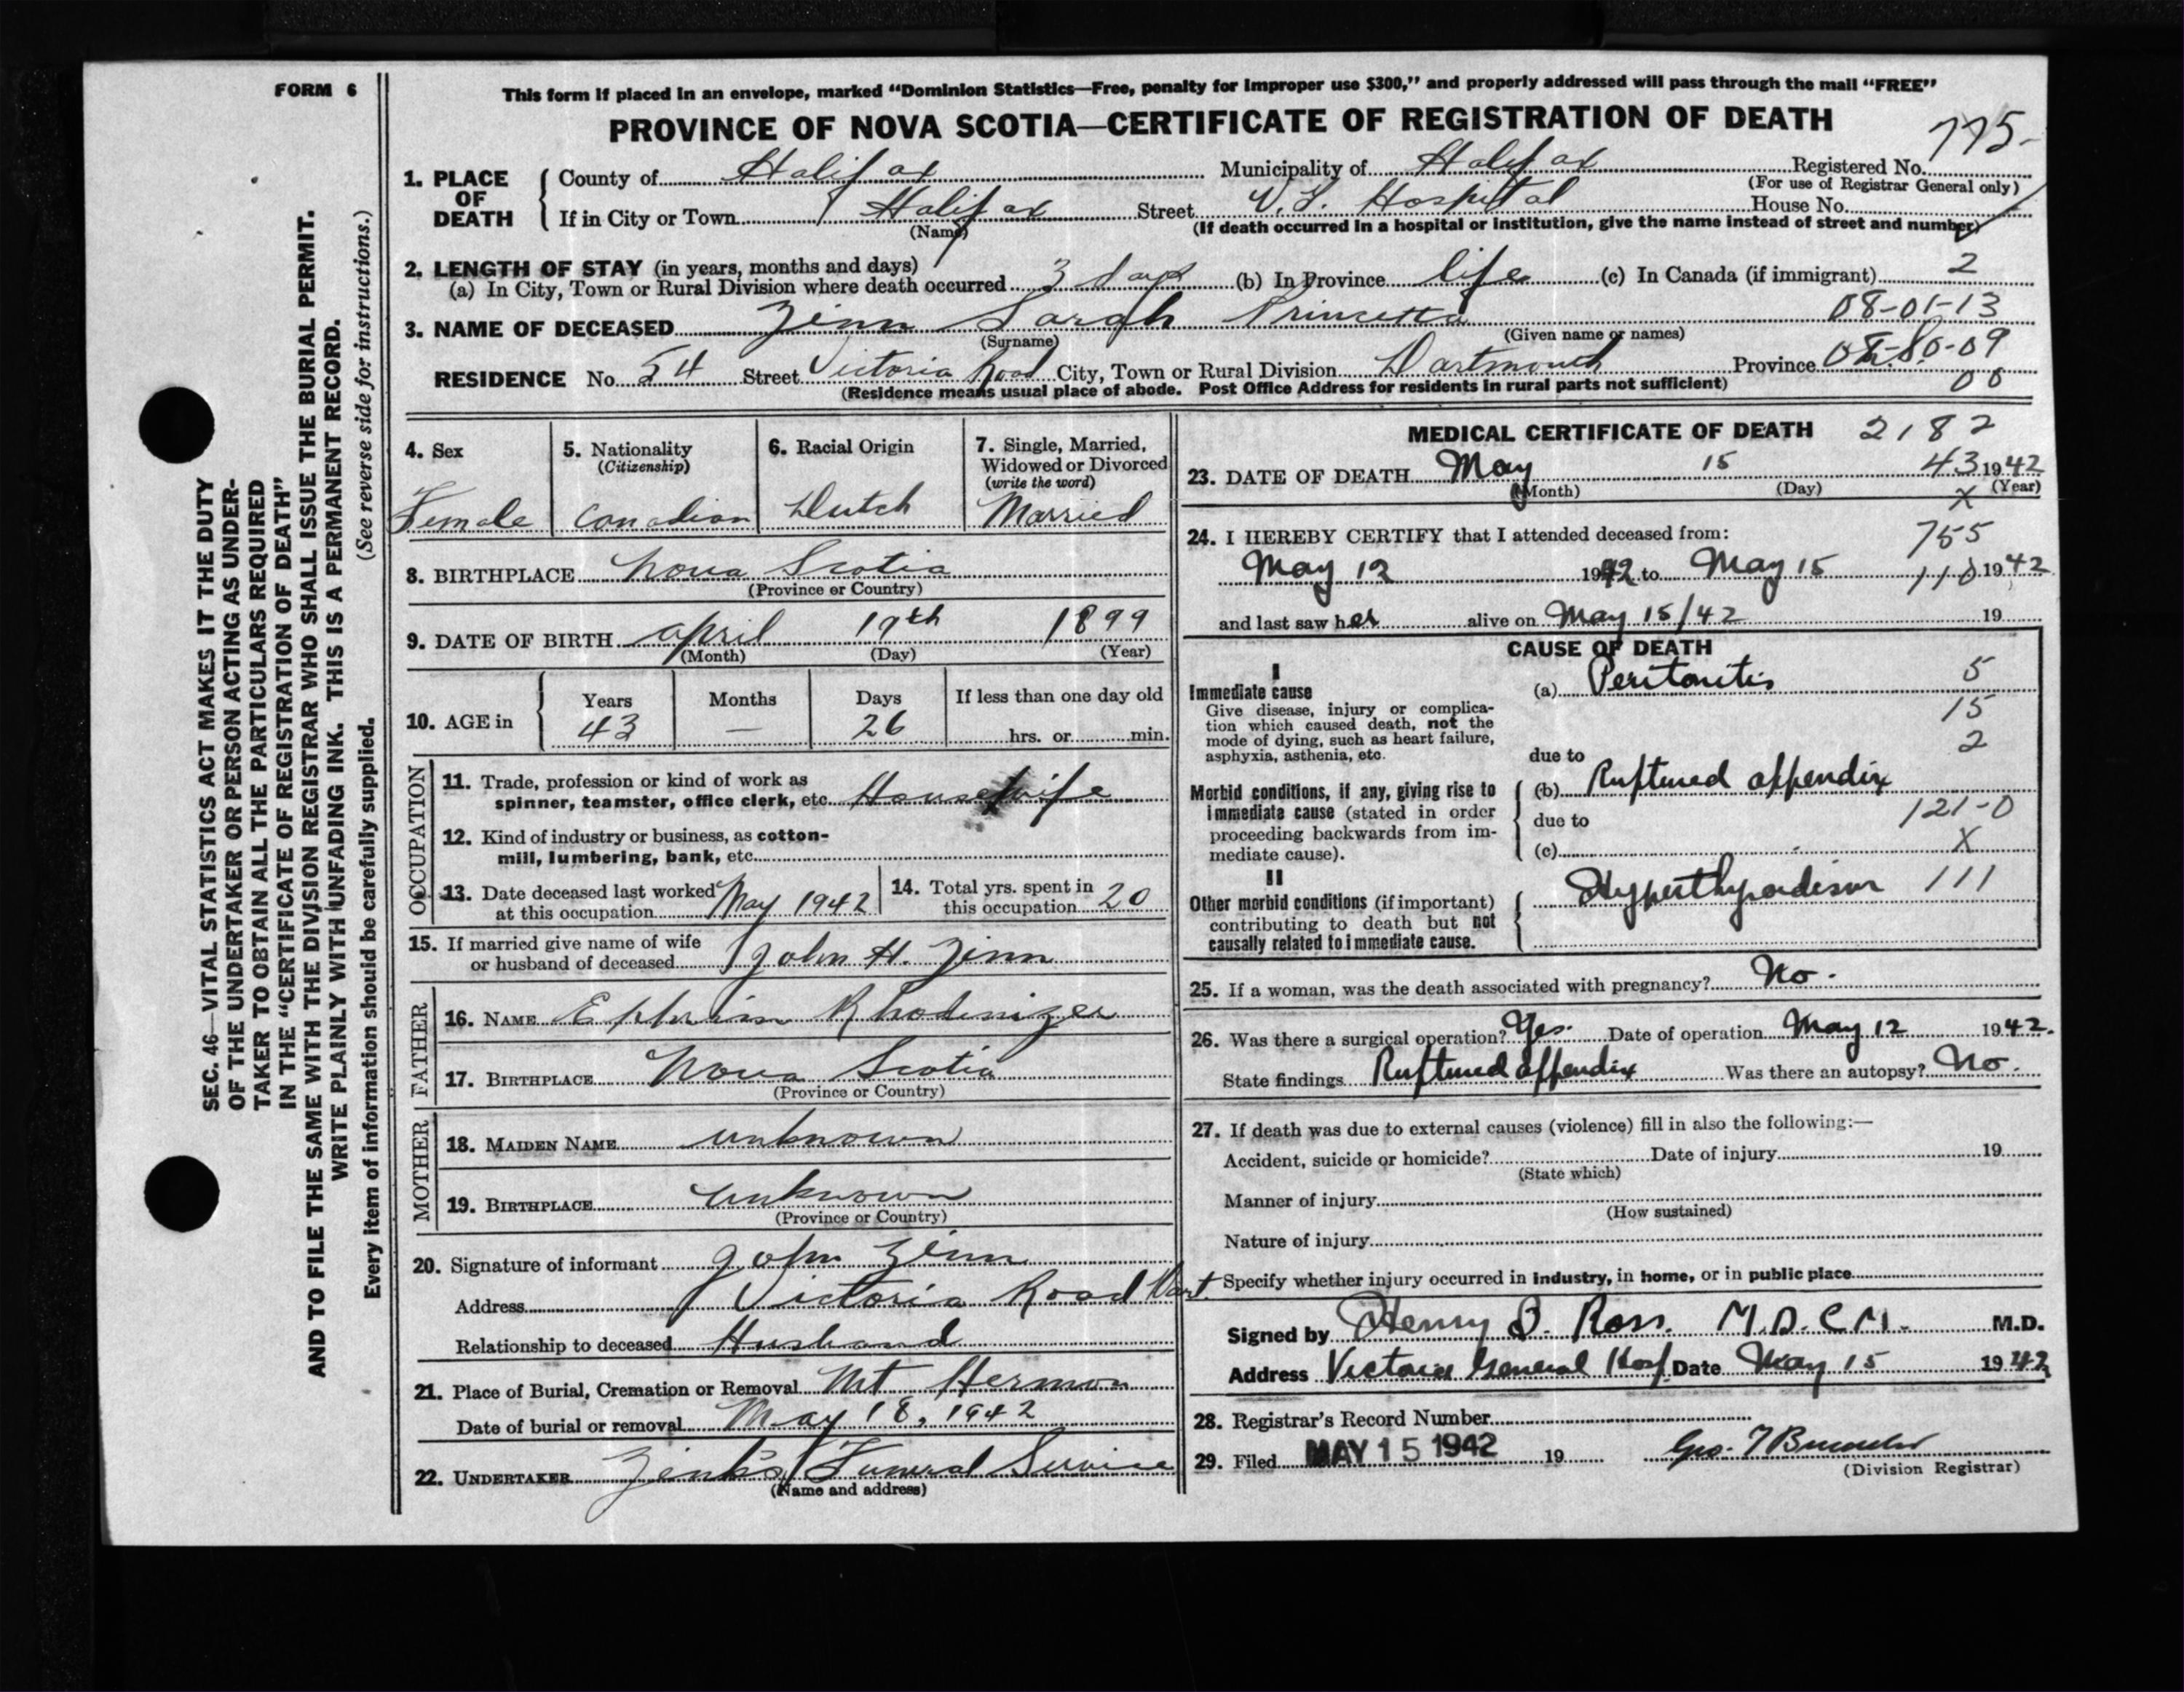 FORM 6
This form if placed in an envelope, marked "Dominion Statistics—Free, penalty for improper use $300," and properly addressed will pass through the mail "FREE"
PROVINCE OF NOVA SCOTIA—CERTIFICATE OF REGISTRATION OF DEATH
775-
1. PLACE OF DEATH
County of Halifax Municipality of Halifax Registered No.
(For use of Registrar General only)
If in City or Town Halifax Street V.G. Hospital House No.
(Name) (If death occurred in a hospital or institution, give the name instead of street and number)
2. LENGTH OF STAY (in years, months and days)
(a) In City, Town or Rural Division where death occurred 3 days (b) In Province life (c) In Canada (if immigrant) 2
08-01-13
3. NAME OF DECEASED Zinn Sarah Princetta
(Surname) (Given name or names)
RESIDENCE No. 54 Street Victoria Road City, Town or Rural Division Dartmouth Province
(Residence means usual place of abode. Post Office Address for residents in rural parts not sufficient) 00
4. Sex Female
5. Nationality (Citizenship) Canadian
6. Racial Origin Dutch
7. Single, Married, Widowed or Divorced (write the word) Married
8. BIRTHPLACE Nova Scotia
(Province or Country)
9. DATE OF BIRTH april 19th 1899
(Month) (Day) (Year)
10. AGE in Years 43 Months — Days 26 If less than one day old hrs. or min.
OCCUPATION
11. Trade, profession or kind of work as spinner, teamster, office clerk, etc. Housewife
12. Kind of industry or business, as cotton-mill, lumbering, bank, etc.
13. Date deceased last worked at this occupation May 1942
14. Total yrs. spent in this occupation 20
15. If married give name of wife or husband of deceased John H. Zinn
FATHER
16. NAME Ephriam Rhodenizer
17. BIRTHPLACE Nova Scotia
(Province or Country)
MOTHER
18. MAIDEN NAME unknown
19. BIRTHPLACE unknown
(Province or Country)
20. Signature of informant John Zinn
Address Victoria Road Dart.
Relationship to deceased Husband
21. Place of Burial, Cremation or Removal Mt Hermon
Date of burial or removal May 18, 1942
22. UNDERTAKER Zink's Funeral Service
(Name and address)
MEDICAL CERTIFICATE OF DEATH 2182
43
23. DATE OF DEATH May 15 1942
(Month) (Day) (Year)
X
24. I HEREBY CERTIFY that I attended deceased from: 755
May 12 1942 to May 15 110 1942
and last saw her alive on May 15/42 19
CAUSE OF DEATH
I
Immediate cause
Give disease, injury or complication which caused death, not the mode of dying, such as heart failure, asphyxia, asthenia, etc.
(a) Peritonitis 5
15
2
due to
Morbid conditions, if any, giving rise to immediate cause (stated in order proceeding backwards from immediate cause).
(b) Ruptured appendix
121-0
due to
X
(c)
II
Other morbid conditions (if important) contributing to death but not causally related to immediate cause.
Hyperthyroidism 111
25. If a woman, was the death associated with pregnancy? No.
26. Was there a surgical operation? Yes. Date of operation May 12 1942.
State findings Ruptured appendix Was there an autopsy? No.
27. If death was due to external causes (violence) fill in also the following:—
Accident, suicide or homicide? Date of injury 19
(State which)
Manner of injury
(How sustained)
Nature of injury
Specify whether injury occurred in industry, in home, or in public place
Signed by Henry B. Ross. M.D.C.M. M.D.
Address Victoria General Hosp. Date May 15 1942
28. Registrar's Record Number
29. Filed MAY 15 1942 19 Geo.
(Division Registrar)
SEC. 46—VITAL STATISTICS ACT MAKES IT THE DUTY
OF THE UNDERTAKER OR PERSON ACTING AS UNDER-
TAKER TO OBTAIN ALL THE PARTICULARS REQUIRED
IN THE "CERTIFICATE OF REGISTRATION OF DEATH"
AND TO FILE THE SAME WITH THE DIVISION REGISTRAR WHO SHALL ISSUE THE BURIAL PERMIT.
WRITE PLAINLY WITH UNFADING INK. THIS IS A PERMANENT RECORD.
(See reverse side for instructions.)
Every item of information should be carefully supplied.